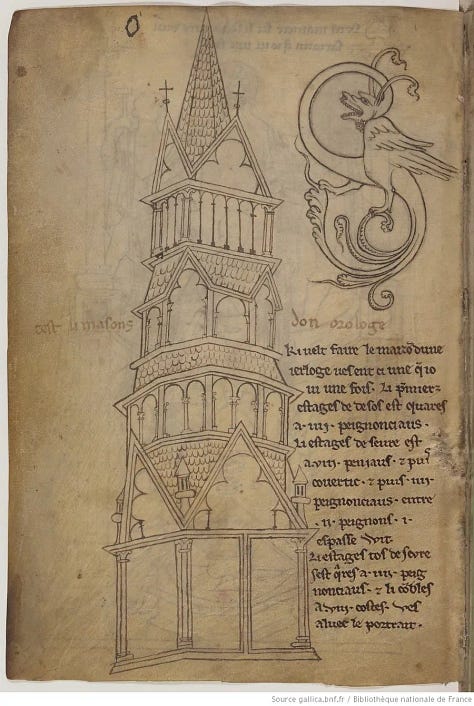 c'est li masons don orologe
Ki velt faire le maizō dune
ierloge vesent ci une q̄ io
vi une fois. Li pmierz
estages de desos est quares
a .iiii. peignonciaus.
Li estages de seure est
a .viii. peniaus. ⁊ puis
covertic. ⁊ puis .iiii.
peignonciaus. entre
.ii. peignons .i.
espasse wit.
Li estages tos de seure
sest q̄res a .iiii. peig
nonciaus. ⁊ li cobles
a .viii. costes. ves
aluec le portrait.
Source gallica.bnf.fr / Bibliothèque nationale de France